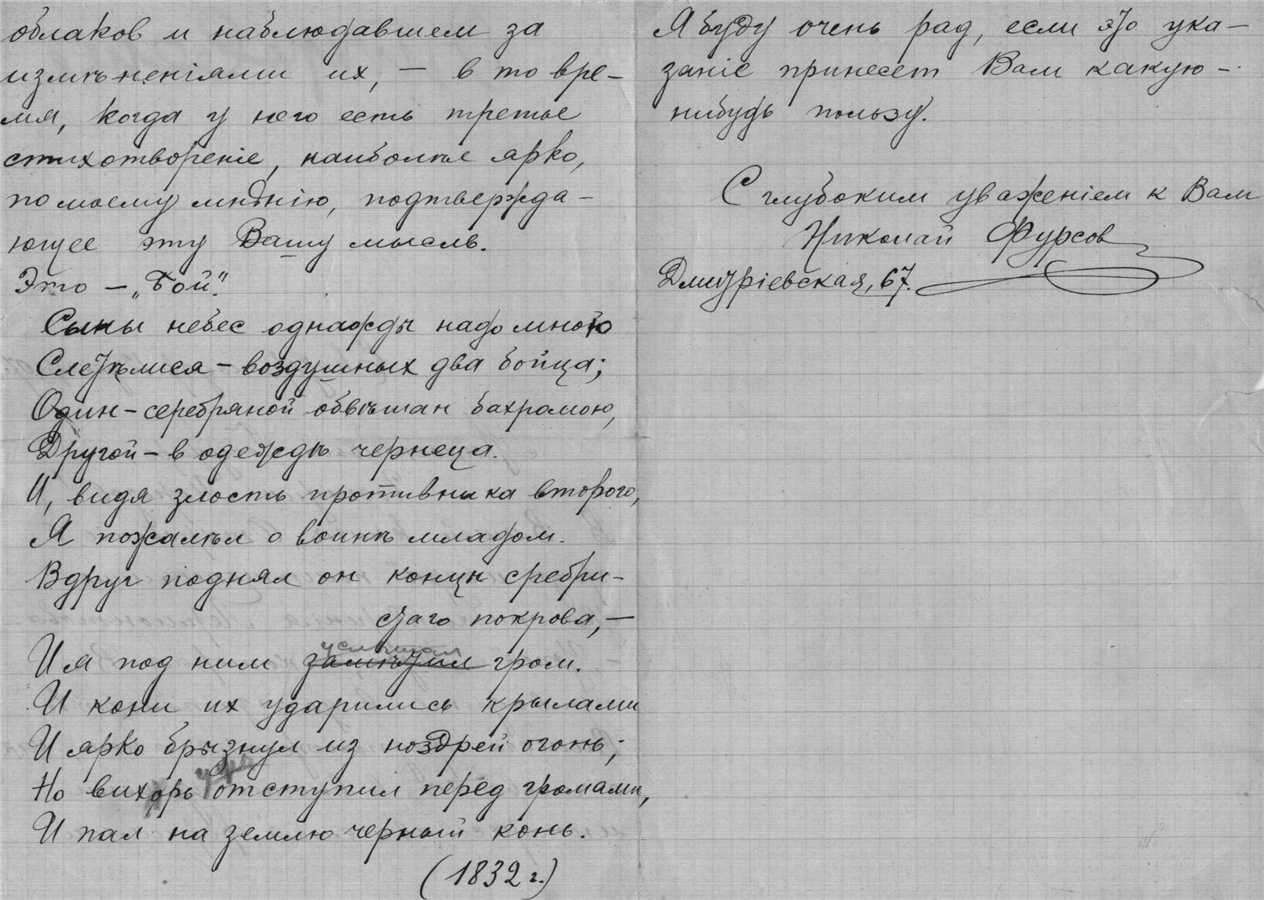 облаков и наблюдавшем за
измѣненіями их, — в то вре-
мя, когда у него есть третье
стихотвореніе, наиболѣе ярко,
по моему мнѣнію, подтвержда-
ющее эту Вашу мысль.
Это — „Бой".
Сыны небес однажды надо мною
Слетѣлися — воздушных два бойца;
Один — серебряной обвѣшан бахромою,
Другой — в одеждѣ чернеца.
И, видя злость противника второго,
Я пожалѣл о воинѣ младом.
Вдруг поднял он концы сребри-
стаго покрова, —
услышал
И я под ним замѣтил гром.
И кони их ударились крылами
И ярко брызнул из ноздрей огонь;
Но вихорь отступил перед громами,
И пал на землю черный конь.
(1832 г.)
Я буду очень рад, если это ука-
заніе принесет Вам какую-
нибудь пользу.
С глубоким уваженіем к Вам
Николай Фурсов
Дмитріевская, 67.